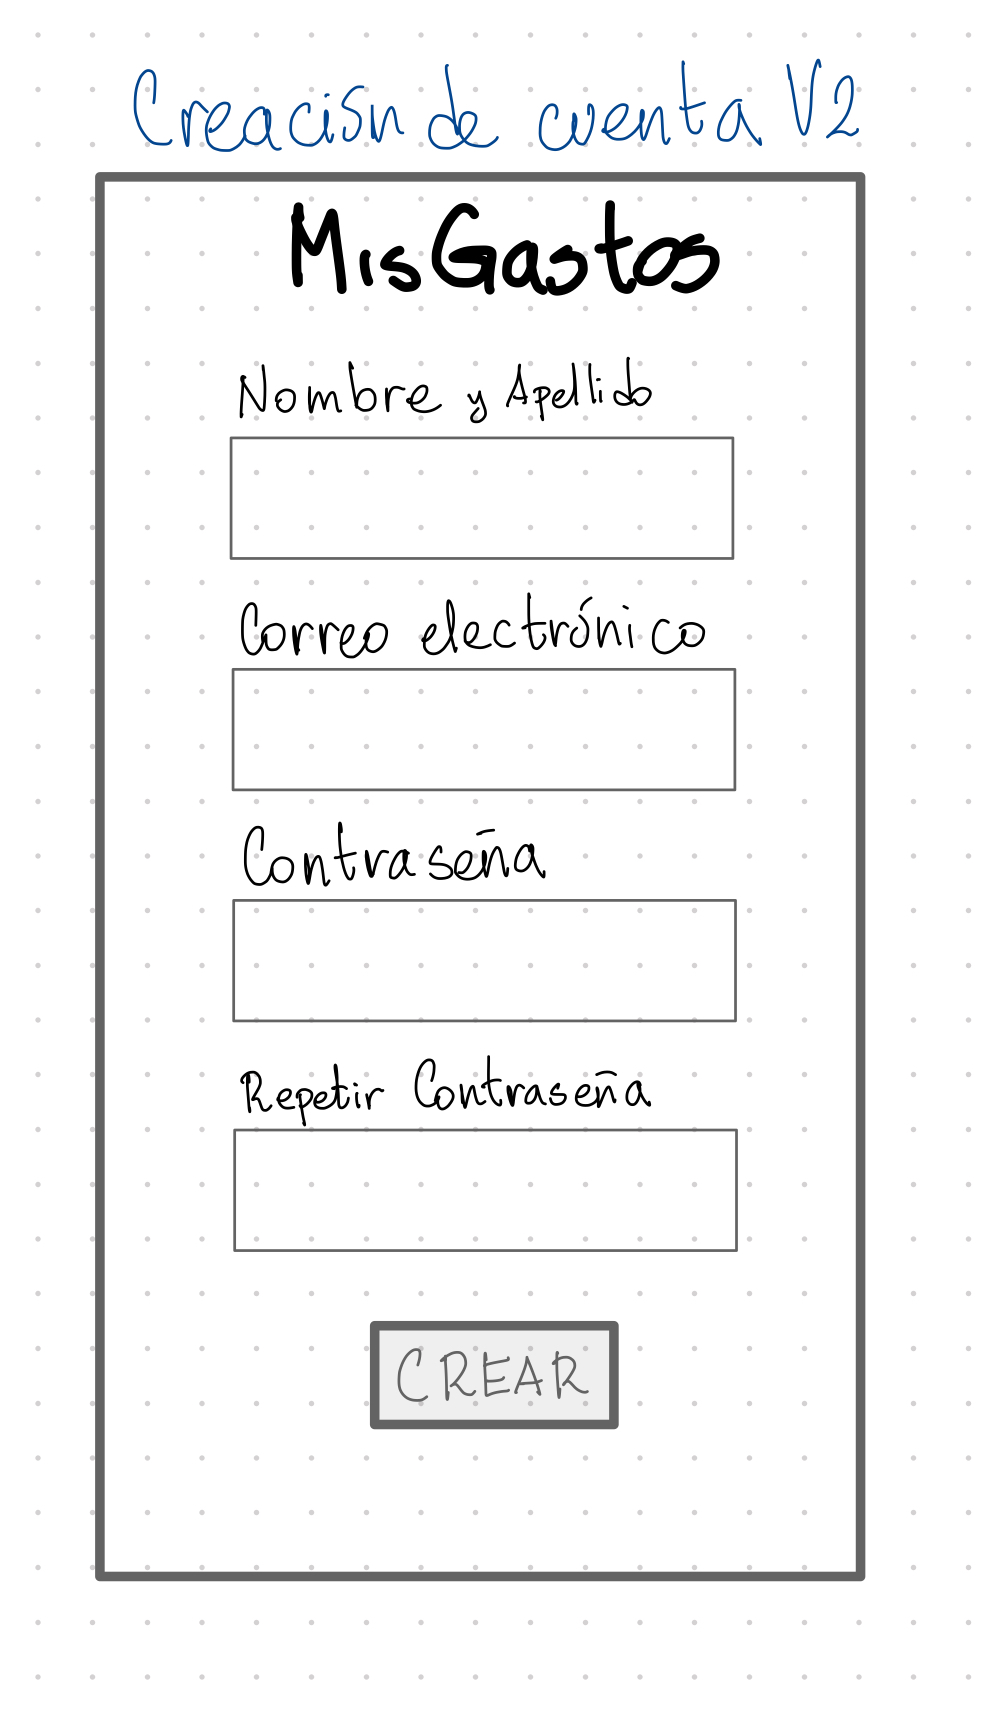 Creación de cuenta V2
MisGastos
Nombre y Apellido
Correo electrónico
Contraseña
Repetir Contraseña
CREAR